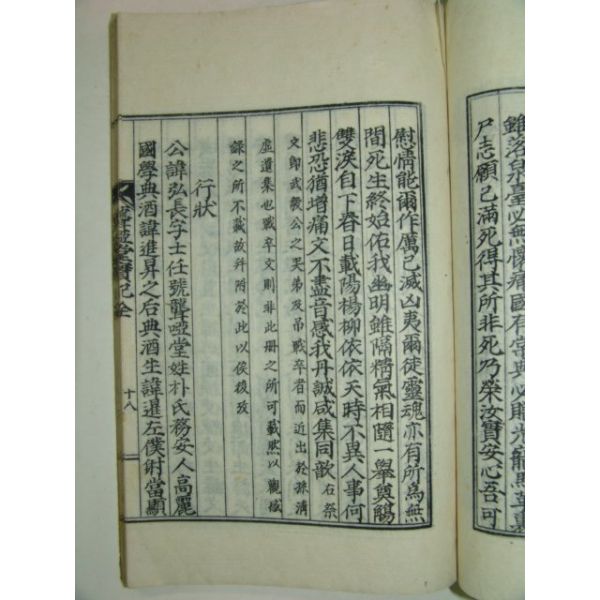 雖落泉臺必無憾痛國有常典必賜光龍馬革裹
尸志願已滿死得其所非死乃榮汝實安心吾可
慰情能爾作厲已滅凶夷爾徒靈魂亦有所爲無
間死生終始佑我幽明雖隔精氣相隨一擧奠觴
雙淚自下春日載陽楊柳依依天時不異人事何
悲恐猶增痛文不盡音感我丹誠咸集同歆 右祭
文卽武毅公之 弟及吊戰卒者而近出於孫淸
虛遺集也戰卒文則非此冊之所可載然以觀城
錄之所不載故幷附於此以俟後攷
行狀
公諱弘長字士任號聾啞堂姓朴氏務安人高麗
國學典酒諱進昇之后典酒生諱暹左僕射當顯
聾啞堂實紀 全 十八